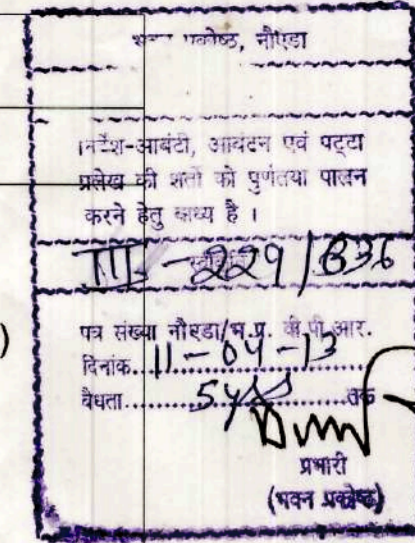 प्रकोष्ठ, नौएडा
निर्देश-आबंटी, आवंटन एवं पट्टा
प्रलेख की शर्तो को पुर्णतया पालन
करने हेतु बाध्य है ।
III-229/836
पत्र संख्या नौएडा/भ.प्र. वी.पी.आर.
दिनांक..11-04-13
वैधता......5......तक
प्रभारी
(भवन प्रकोष्ठ)
)